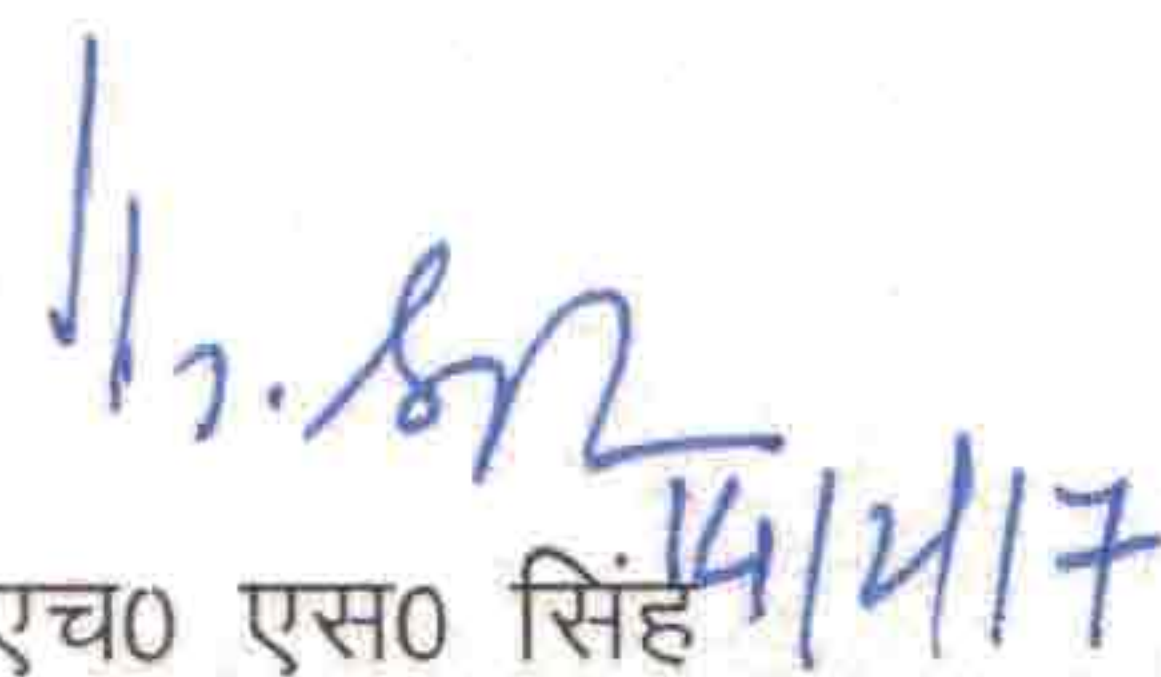 14/2/17
एच0 एस0 सिंह